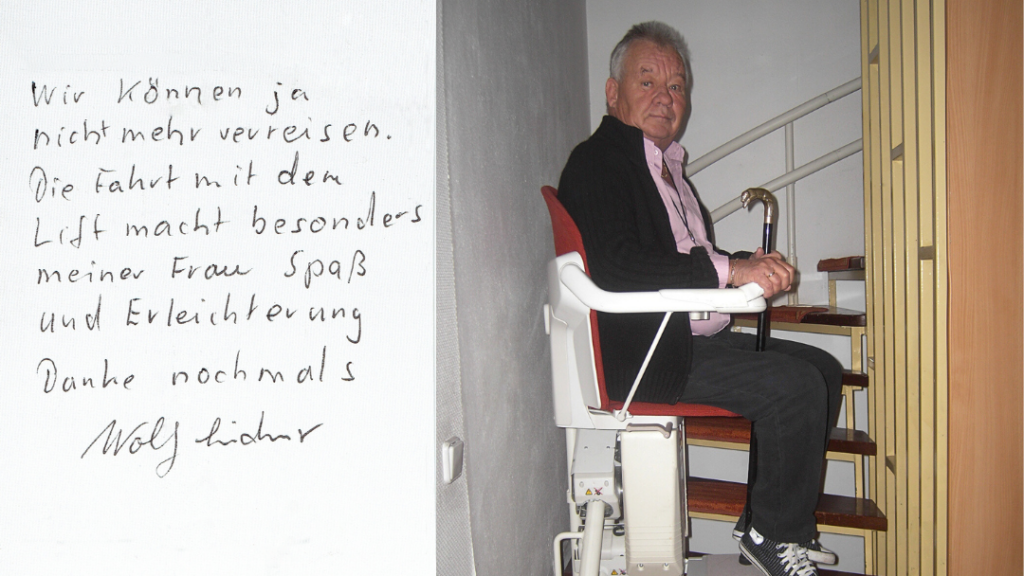 Wir können ja
nicht mehr verreisen.
Die Fahrt mit dem
Lift macht besonders
meiner Frau Spaß
und Erleichterung
Danke nochmals
Wolf